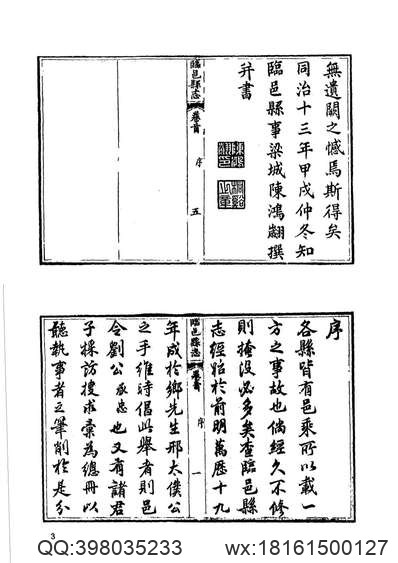 無遺闕之憾焉斯得矣
同治十三年甲戌仲冬知
臨邑縣事梁城陳鴻翽撰
并書
臨邑縣志
卷首
序
五
序
各縣皆有邑乘所以載一
方之事故也倘經久不修
則掩沒必多矣查臨邑縣
志經始於前明萬歷十九
臨邑縣志
卷首
序
一
年成於鄉先生邢太僕公
之手維時倡此舉者則邑
令劉公承忠也又有諸君
子採訪搜求彙為總冊以
聽執事者之筆削於是分
3
QQ:398035233
wx:18161500127